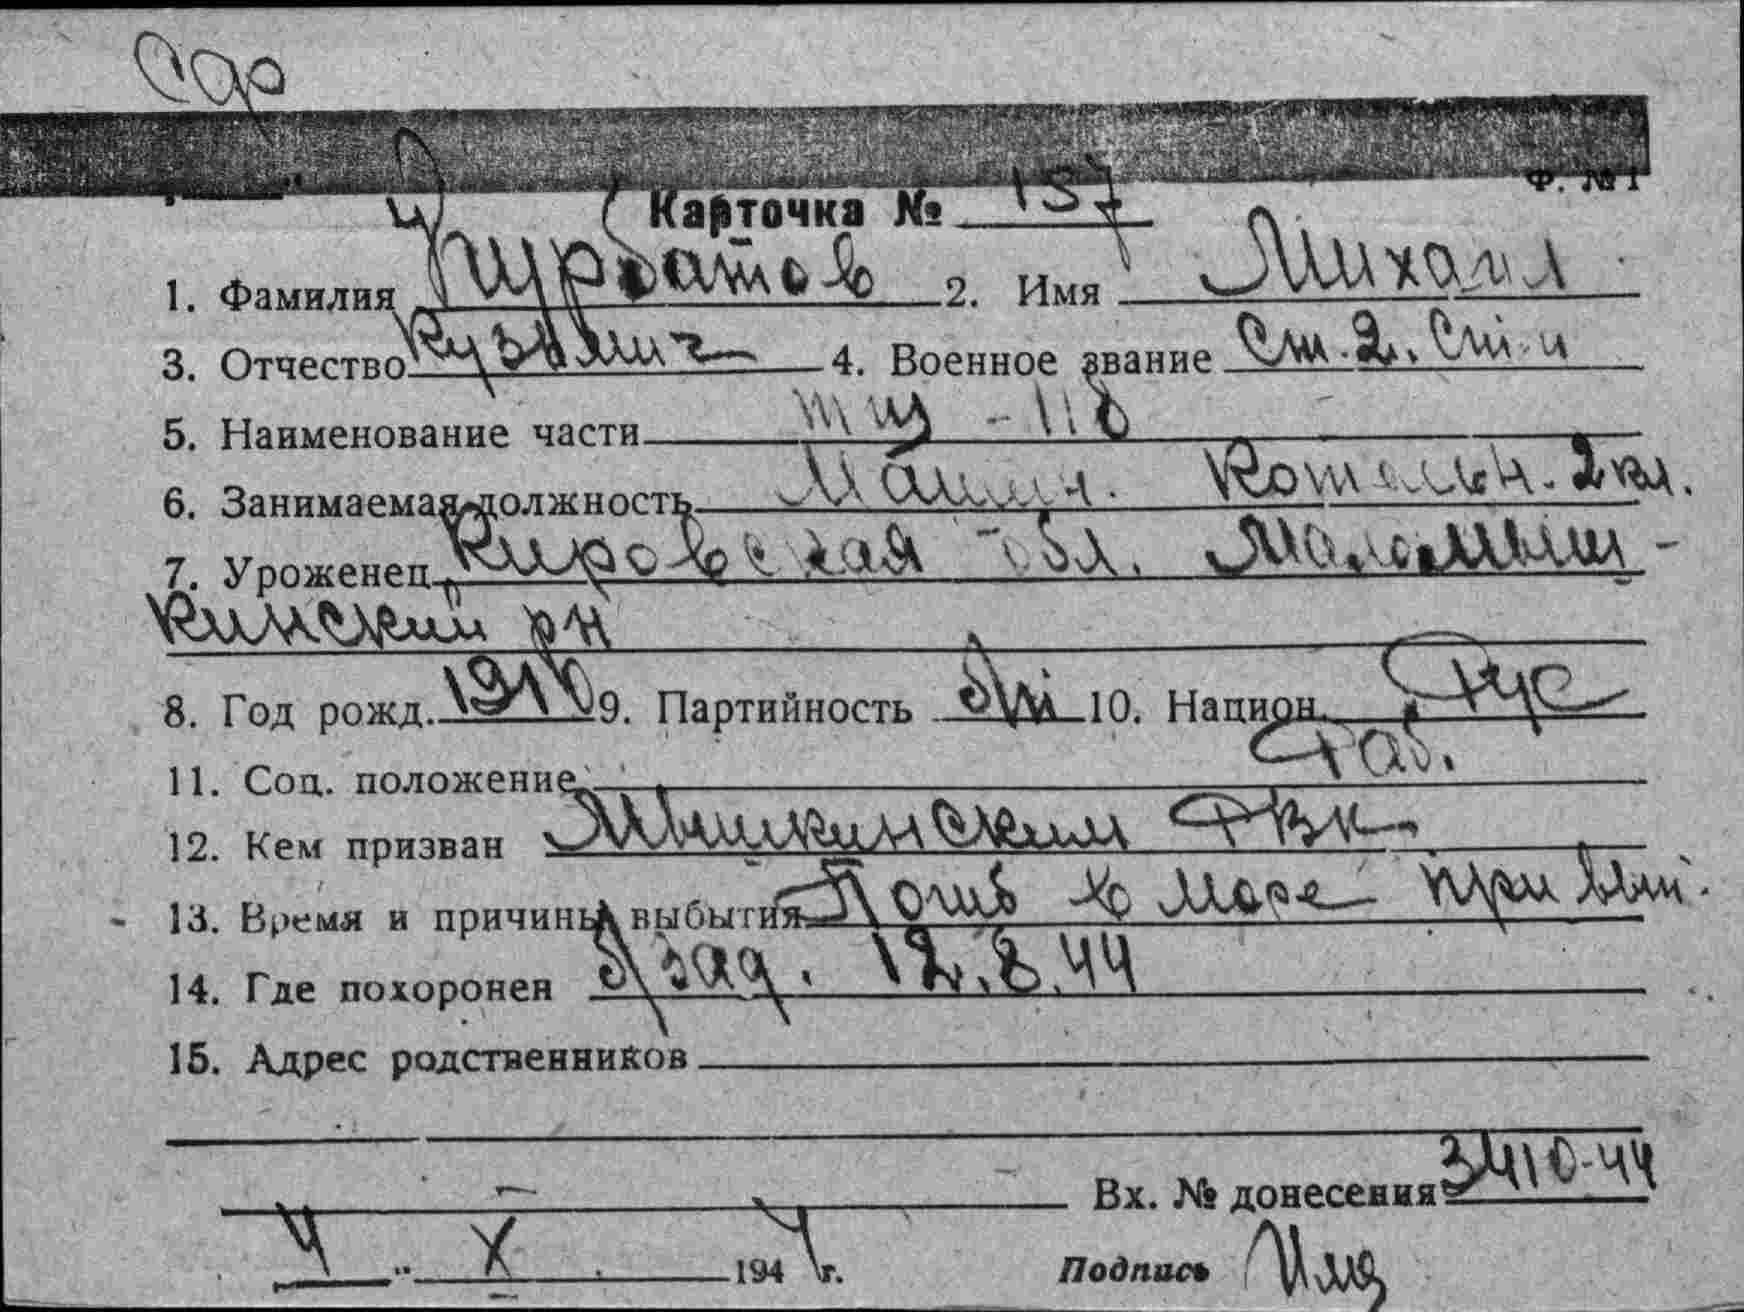 Ф. № 1
Карточка № 157
1. Фамилия Курбатов 2. Имя Михаил
3. Отчество Кузьмич 4. Военное звание Ст. 2. Ст-и
5. Наименование части тщ - 118
6. Занимаемая должность Машин. Котельн. 2 кл.
7. Уроженец Кировская обл. Маломыш-
кинский рн
8. Год рожд. 1910 9. Партийность 10. Национ. Рус
11. Соц. положение Раб.
12. Кем призван Мышкинским РВК
13. Время и причины выбытия Погиб в море при вып.
14. Где похоронен зад. 12.8.44
15. Адрес родственников
Вх. № донесения 3410-44
4 " X 1944 г. Подпись